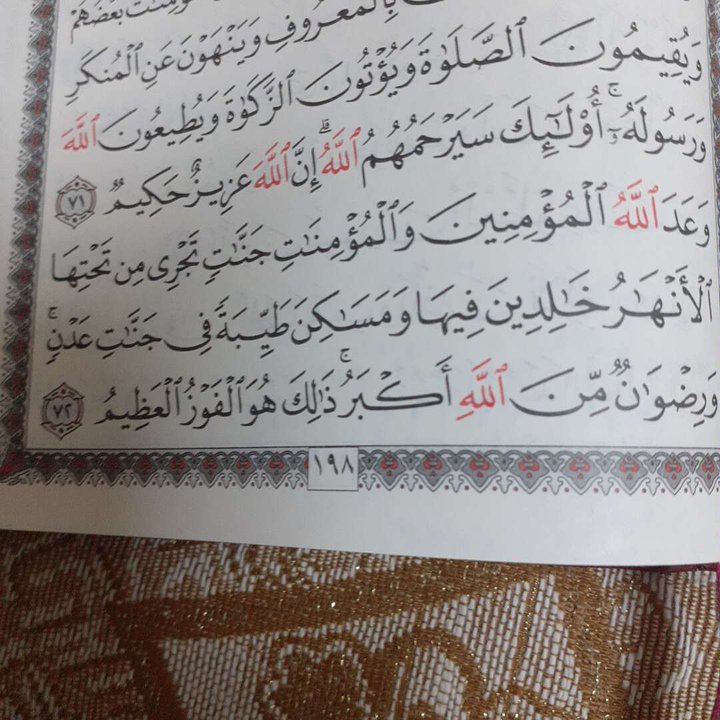 بَعْضُهُمْ
بِالْمَعْرُوفِ وَيَنْهَوْنَ عَنِ الْمُنكَرِ
وَيُقِيمُونَ ٱلصَّلَوٰةَ وَيُؤْتُونَ ٱلزَّكَوٰةَ وَيُطِيعُونَ ٱللَّهَ
وَرَسُولَهُۥٓ ۚ أُو۟لَـٰٓئِكَ سَيَرْحَمُهُمُ ٱللَّهُ ۗ إِنَّ ٱللَّهَ عَزِيزٌ حَكِيمٌ ٧١
وَعَدَ ٱللَّهُ ٱلْمُؤْمِنِينَ وَٱلْمُؤْمِنَـٰتِ جَنَّـٰتٍ تَجْرِى مِن تَحْتِهَا
ٱلْأَنْهَـٰرُ خَـٰلِدِينَ فِيهَا وَمَسَـٰكِنَ طَيِّبَةً فِى جَنَّـٰتِ عَدْنٍ ۚ
وَرِضْوَٰنٌ مِّنَ ٱللَّهِ أَكْبَرُ ۚ ذَٰلِكَ هُوَ ٱلْفَوْزُ ٱلْعَظِيمُ ٧٢
١٩٨